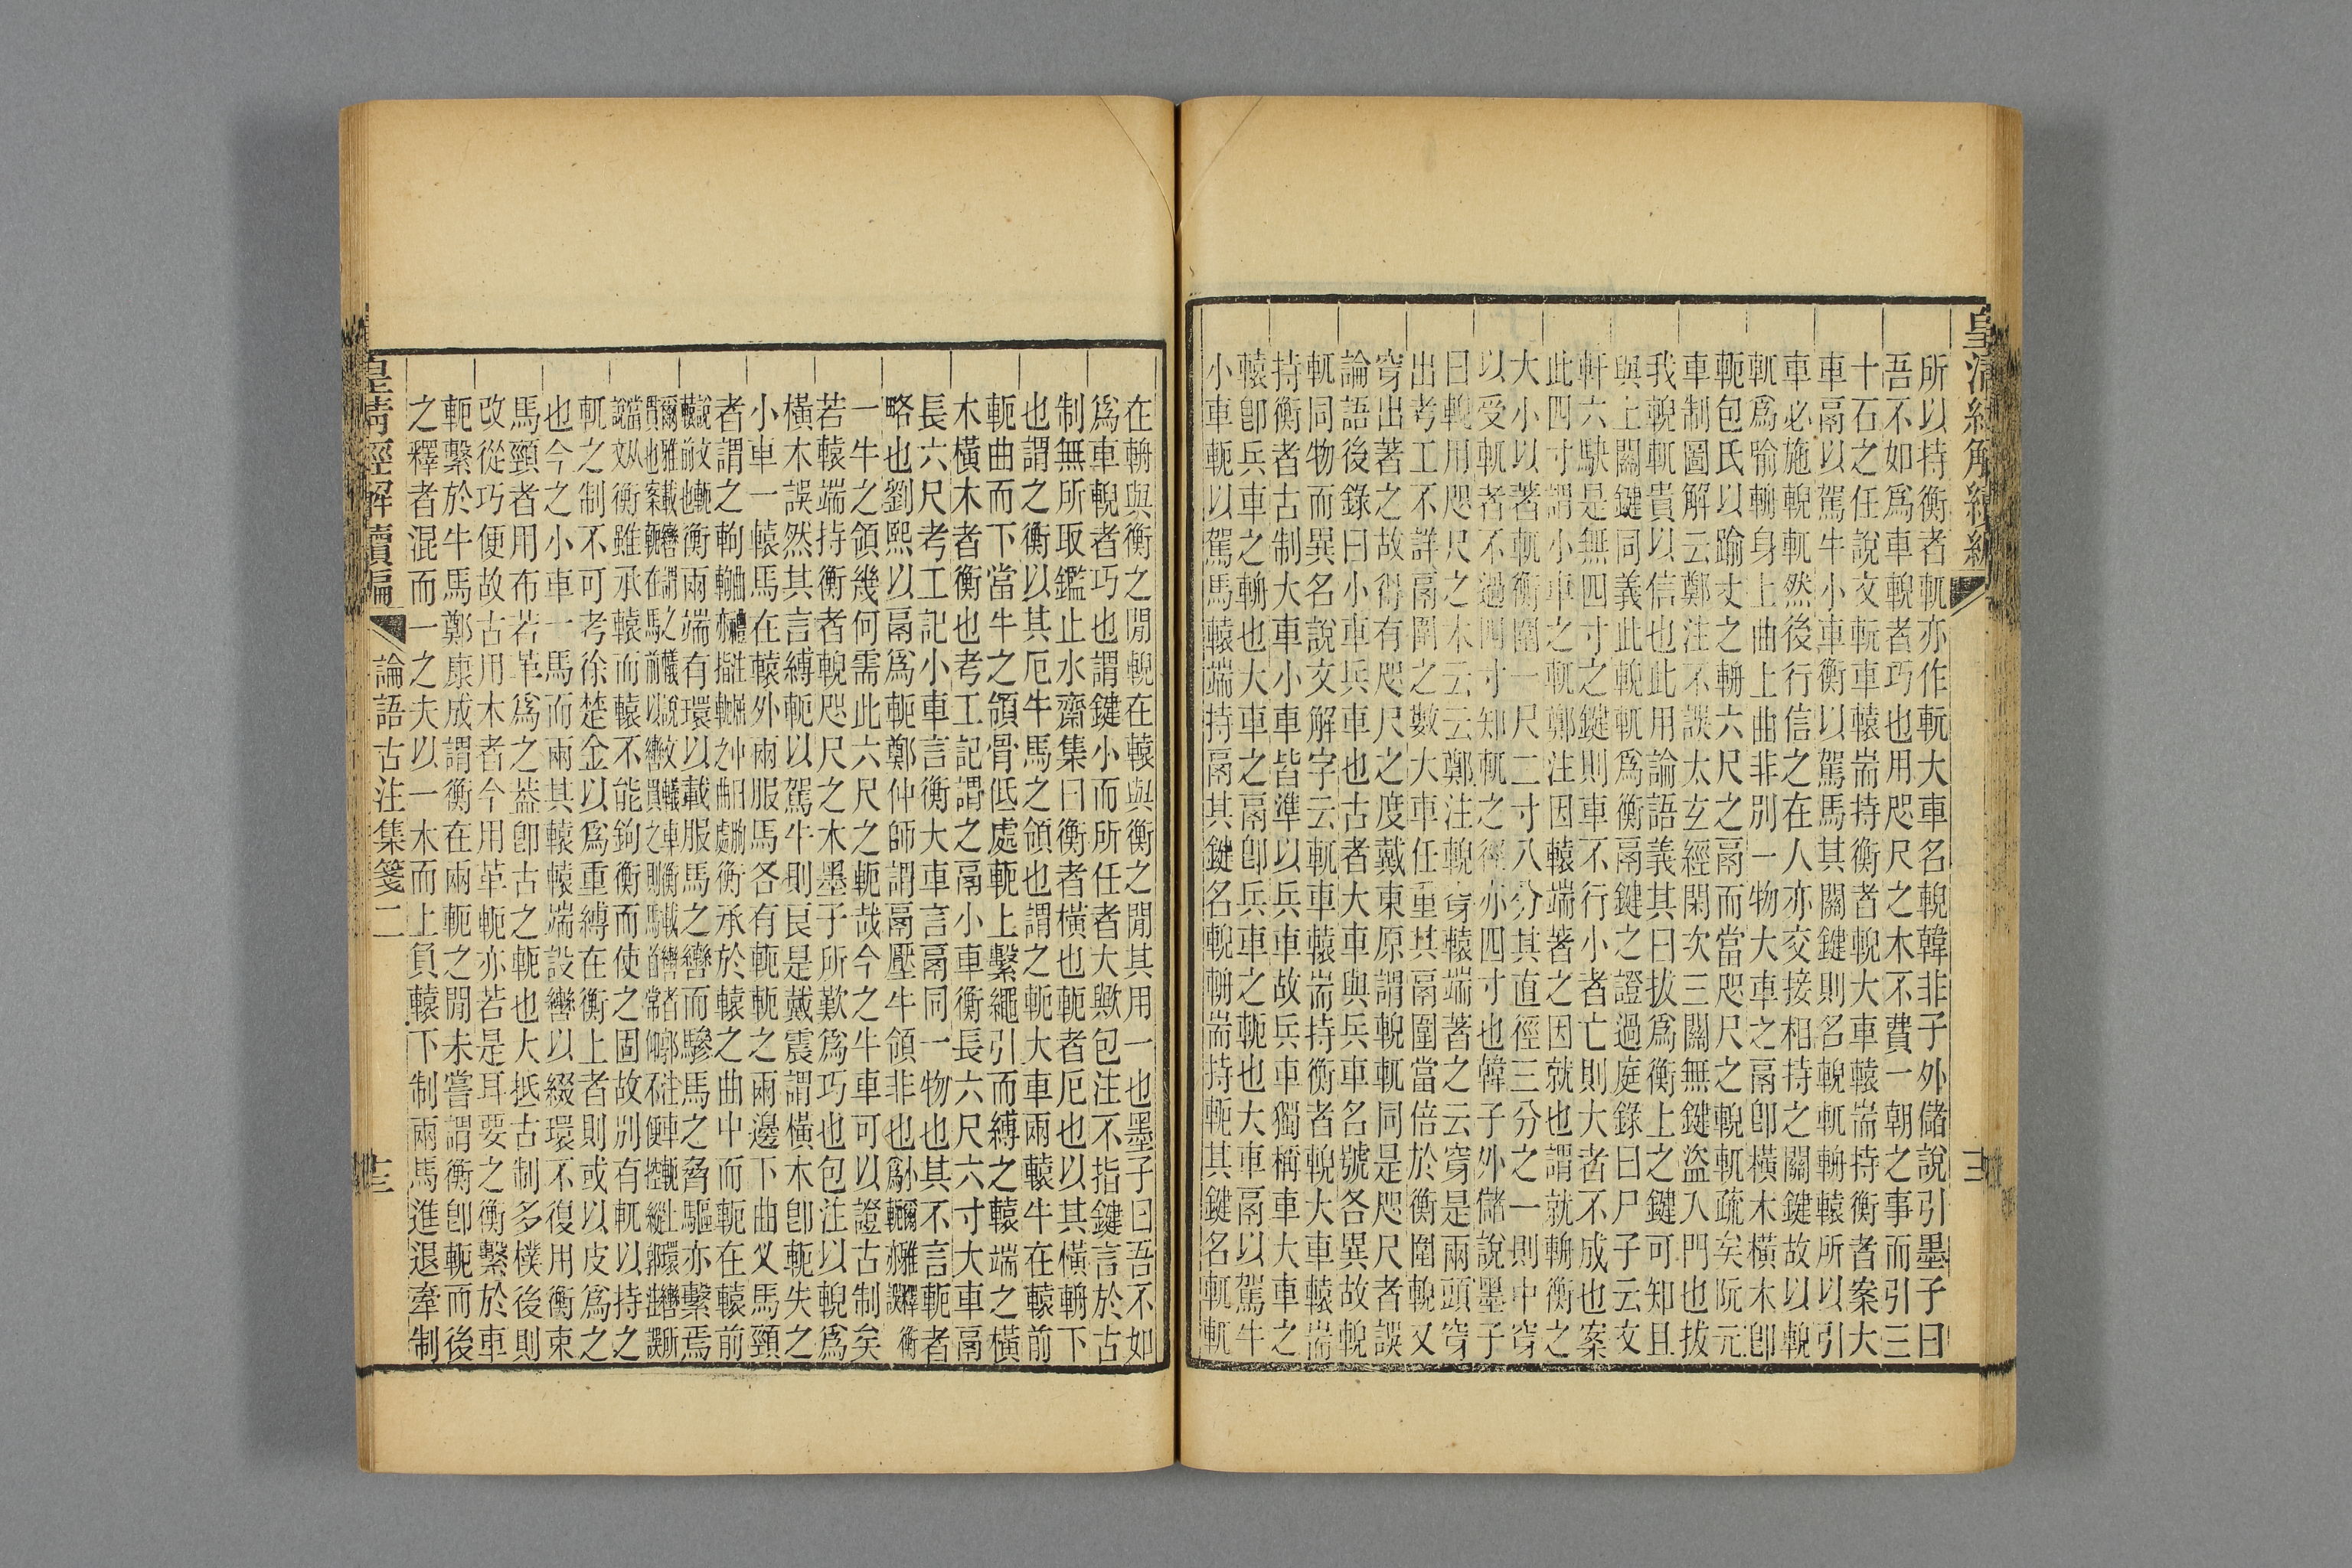 皇清經解續編
所以持衡者軏亦作䡇大車名輗韓非子外儲說引墨子曰
吾不如為車輗者巧也用咫尺之木不費一朝之事而引三
十石之任說文䡇車轅耑持衡者輗大車轅耑持衡者案大
車鬲以駕牛小車衡以駕馬其關鍵則名輗軏輈轅所以引
車必施輗軏然後行信之在人亦交接相持之關鍵故以輗
軏為喻輈身上曲上曲非別一物大車之鬲卽橫木橫木卽
軶包氏以踰丈之輈六尺之鬲而當咫尺之輗軏疏矣阮元
車制圖解云鄭注不誤太玄經閑次三關無鍵盜入門也拔
我輗軏貴以信也此用論語義其曰拔為衡上之鍵可知且
與上關鍵同義此輗軏為衡鬲鍵之證過庭錄曰尸子云文
軒六駃是無四寸之鍵則車不行小者亡則大者不成也案
此四寸謂小車之軏鄭注因轅端著之因就也謂就輈衡之
大小以著軏衡圍一尺二寸八分其直徑三分之一則中穿
以受軏者不過四寸知軏之徑亦四寸也韓子外儲說墨子
曰輗用咫尺之木云云鄭注輗穿轅端著之云穿是兩頭穿
出考工不詳鬲圍之數大車任重其鬲圍當倍於衡圍輗又
穿出著之故得有咫尺之度戴東原謂輗軏同是咫尺者誤
論語後錄曰小車兵車也古者大車與兵車名號各異故輗
軏同物而異名說文解字云軏車轅耑持衡者輗大車轅耑
持衡者古制大車小車皆準以兵車故兵車獨稱車大車之
轅卽兵車之輈也大車之鬲卽兵車之軶也大車鬲以駕牛
小車軶以駕馬轅端持鬲其鍵名輗輈耑持軶其鍵名軏軏
在輈與衡之閒輗在轅與衡之閒其用一也墨子曰吾不如
為車輗者巧也謂鍵小而所任者大歟包注不指鍵言於古
制無所取鑑止水齋集曰衡者橫也軶者厄也以其橫輈下
也謂之衡以其厄牛馬之領也謂之軶大車兩轅牛在轅前
軶曲而下當牛之領骨低處軶上繫繩引而縛之轅端之橫
木橫木者衡也考工記謂之鬲小車衡長六尺六寸大車鬲
長六尺考工記小車言衡大車言鬲同一物也其不言軶者
略也劉熙以鬲為軶鄭仲師謂鬲壓牛領非也爾雅釋衡
一牛之領幾何需此六尺之軶哉今之牛車可以證古制矣
若轅端持衡者輗咫尺之木墨子所歎為巧也包注以輗為
橫木誤然其言縛軶以駕牛則良是戴震謂橫木卽軶失之
小車一轅馬在轅外兩服馬各有軶軶之兩邊下曲乂馬頸
者謂之軥衡承於轅之曲中而軶在轅前
衡兩端有環以載服馬之轡而驂馬之脅驅亦繫焉
衡雖承轅而轅不能鉤衡而使之固故別有軏以持之
軏之制不可考徐楚金以為重縛在衡上者則或以皮為之
也今之小車一馬而兩其轅轅端設轡以綴環不復用衡束
馬頸者用布若革為之葢卽古之軶也大抵古制多樸後則
改從巧便故古用木者今用革軶亦若是耳要之衡繫於車
軶繫於牛馬鄭康成謂衡在兩軶之閒未嘗謂衡卽軶而後
之釋者混而一之夫以一木而上負轅下制兩馬進退牽制
皇清經解續編
論語古注集箋二